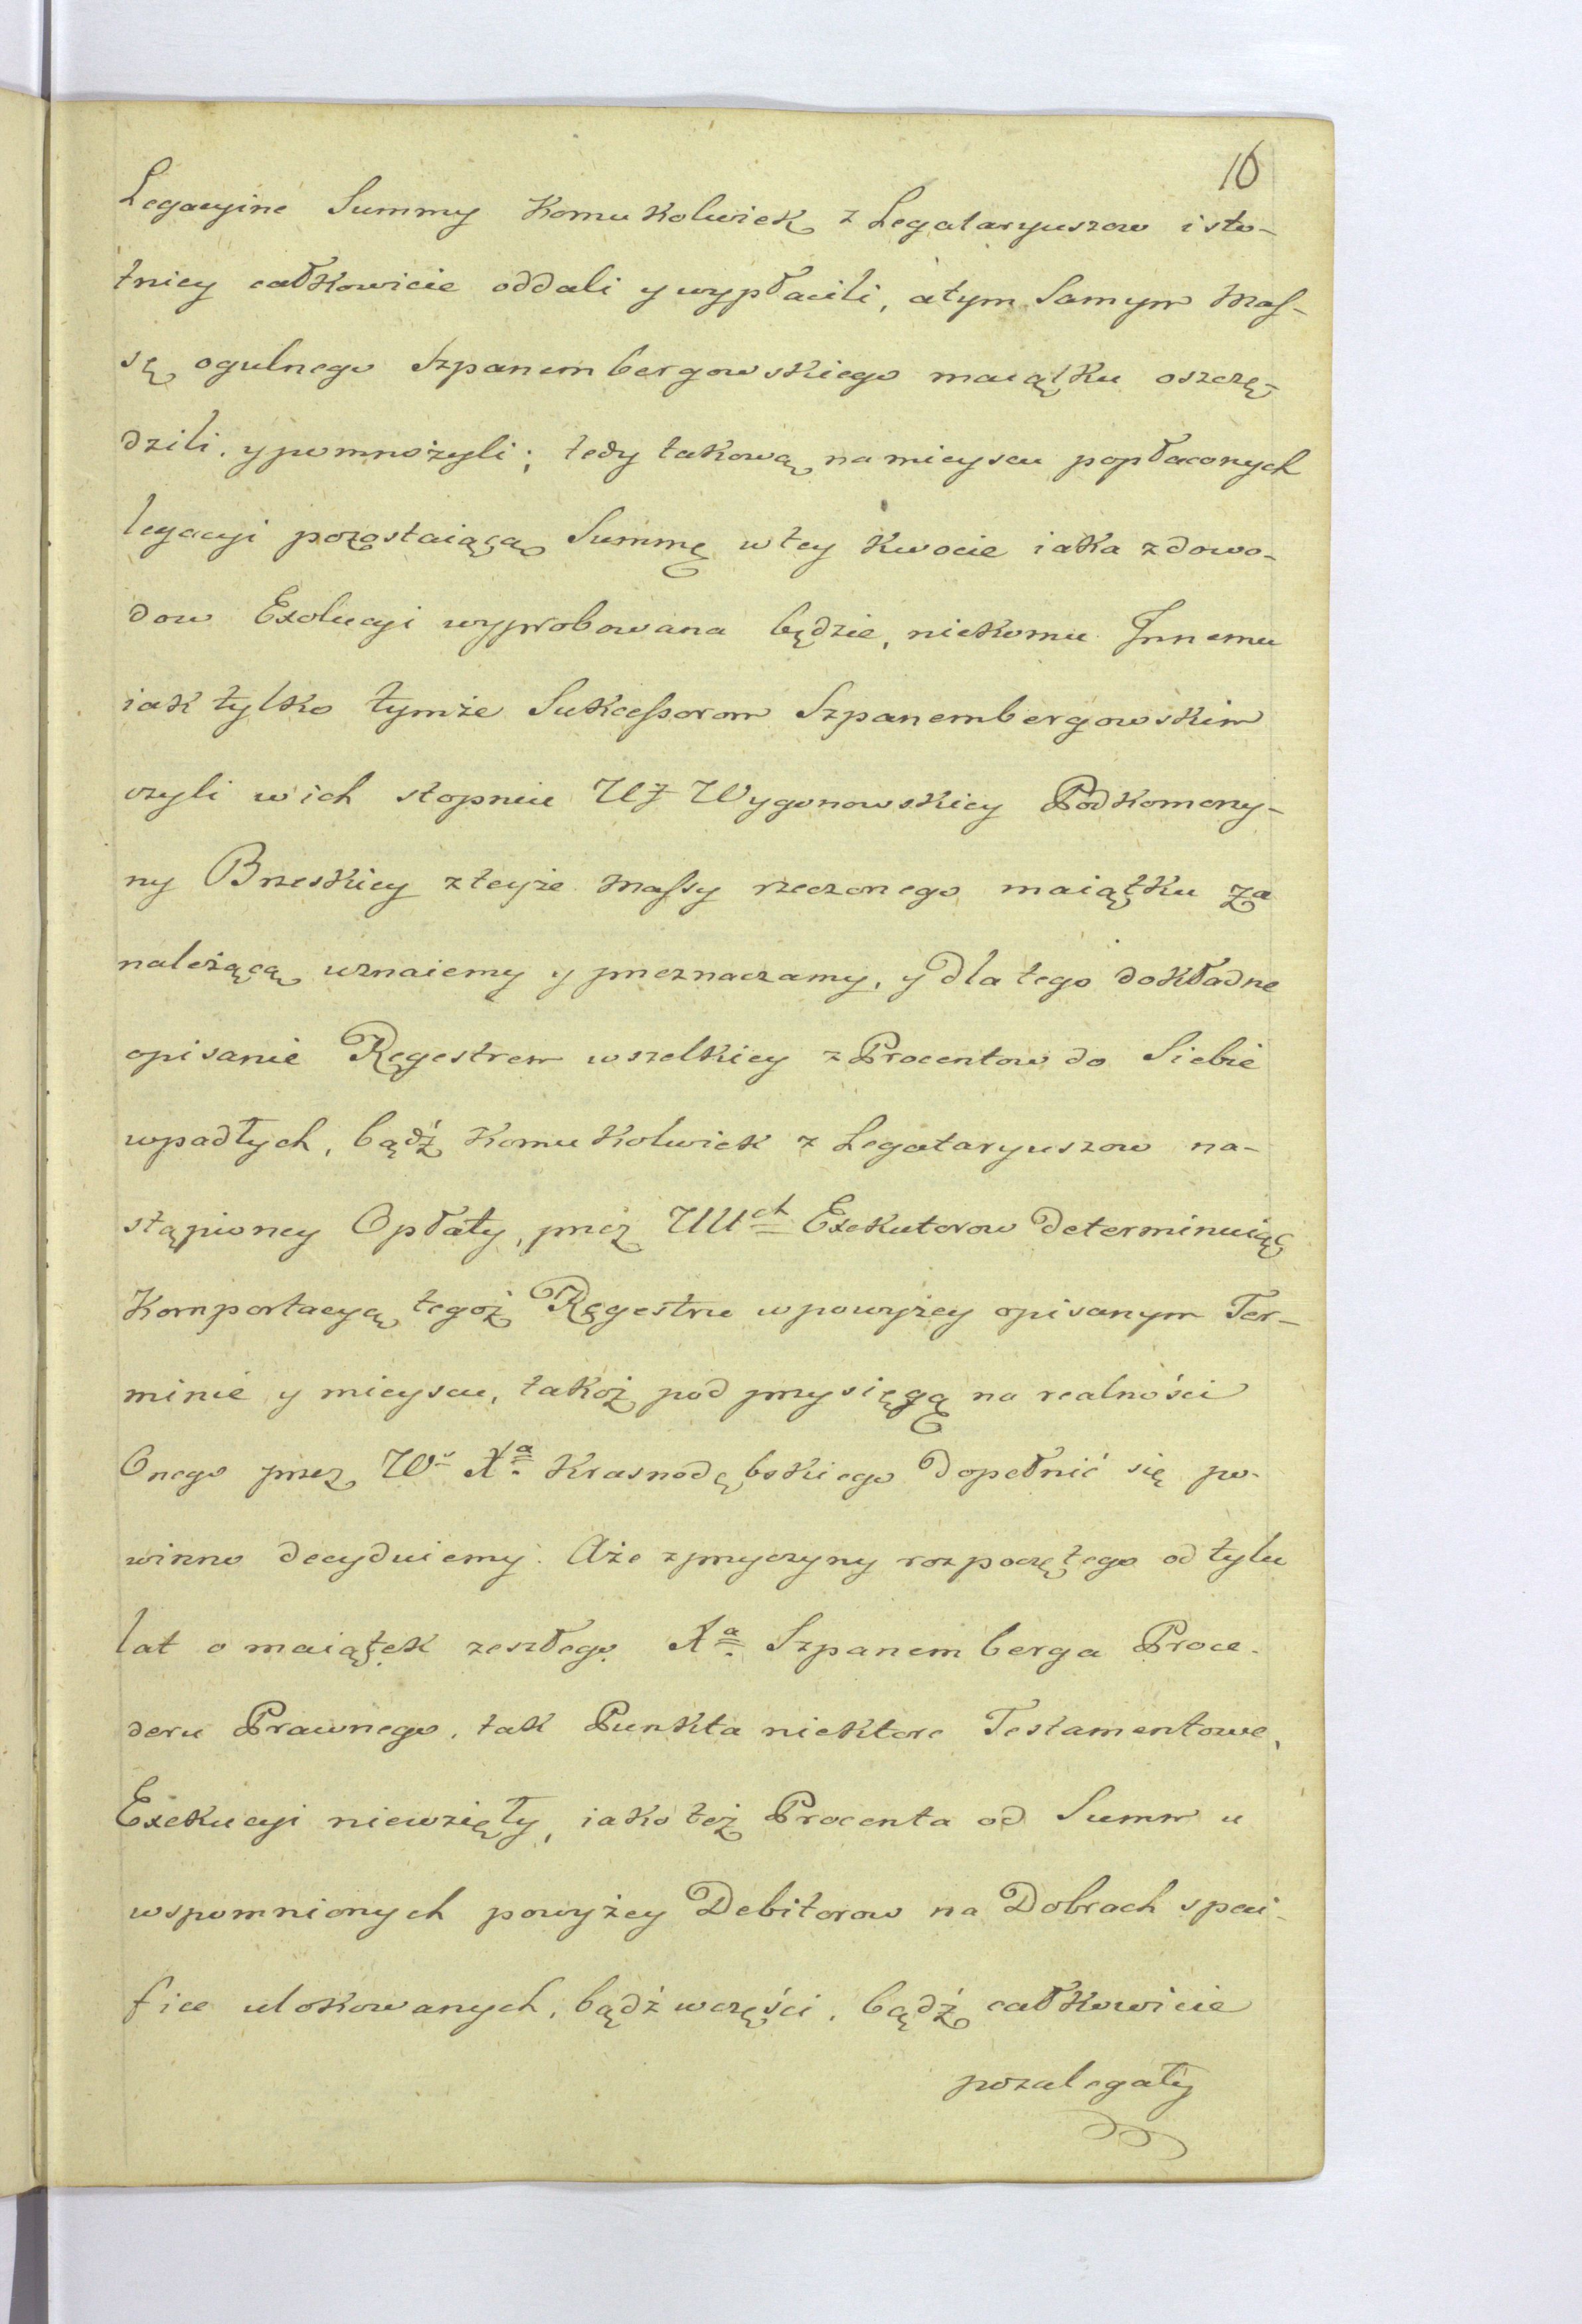 16
Legacyine Summy komukolwiek z Legataryuszow isto-
tniey całkowicie oddali y wypłacili, atym Samym Mas-
sę ogulnego Szpanembergowskiego maiątku oszczę-
dzili, y pomnożyli; tedy takową na mieyscu popłaconych
legacyi pozostaiącą Summę wtey kwocie iaka zdowo-
dow Exolucyi wyprobowana będzie, niekomu Innemu
iak tylko tymże Sukcessorom Szpanembergowskim
czyli wich stopniu WJ Wygonowskiey Podkomorzy-
ny Brzeskiey zteyże Massy rzeczonego maiątku za
należącą uznaiemy y przeznaczamy, y dla tego dokładne
opisanie Regestrem wszelkiey z Procentow do Siebie
wpadłych, bądź komukolwiek z Legataryuszow na-
stąpioney Opłaty, przez WWch Exekutorow determinuiąc
Komportacyą tegoż Regestru wpowyżey opisanym Ter-
minie y mieyscu, takoż pod przysięgą na realności
Onego przez W. Xa Krasnodębskiego dopełnić się po-
winno decyduiemy. Aże zprzyczyny rozpoczętego od tylu
lat o maiątek zeszłego Xa Szpanemberga Proce-
deru Prawnego, tak Punkta niektore Testamentowe,
Exekucyi niewzięły, iako też Procenta od Summ u
wspomnionych powyżey Debitorow na Dobrach speci-
fice ulokowanych, bądź wczęści, bądź całkowicie
pozalegały